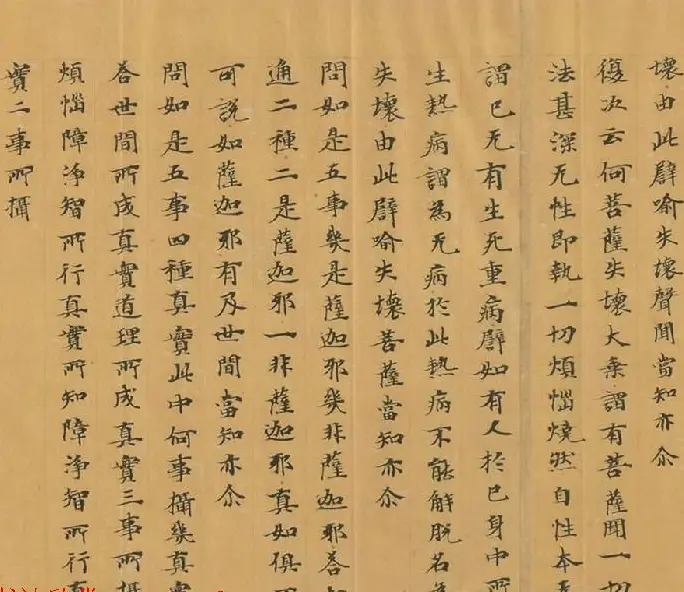 壞由此譬喻失壞聲聞當知亦尒
復次云何菩薩失壞大乘謂有菩薩聞一切
法甚深无性即執一切煩惱燒然自性本
謂已无有生死重病譬如有人於己身中所
生熱病謂為无病於此熱病不能解脫名為
失壞由此譬喻失壞菩薩當知亦尒
問如是五事幾是薩迦邪幾非薩迦邪荅
通二種二是薩迦邪一非薩迦邪真如俱
可說如薩迦邪有及世間當知亦尒
問如是五事四種真實此中何事攝幾真實
荅世間所成真實道理所成真實三事所攝
煩惱障淨智所行真實所知障淨智所行真
實二事所攝